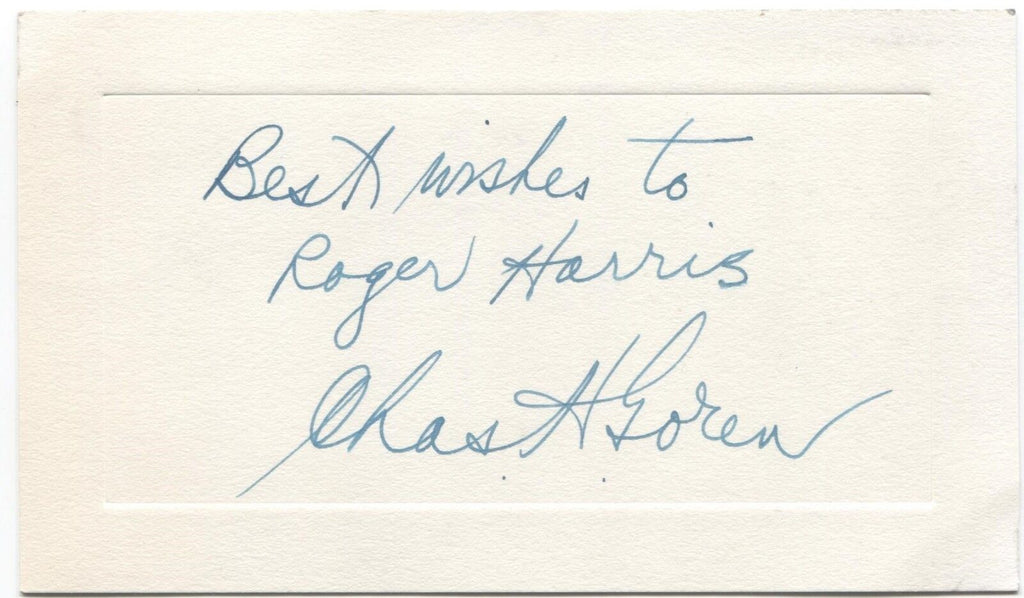 Best wishes to
Roger Harris
Chas. H. Goren